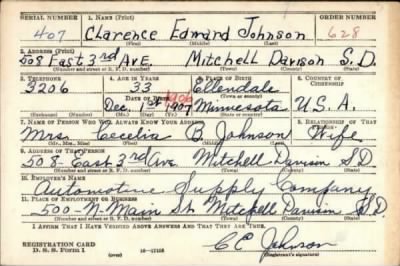 SERIAL NUMBER 1. NAME (Print) ORDER NUMBER
407 Clarence Edward Johnson 628
(First) (Middle) (Last)
2. ADDRESS (Print)
508 East 3rd Ave. Mitchell Davison S.D.
(Number and street or R. F. D. number) (Town) (County) (State)
3. TELEPHONE 4. AGE IN YEARS 5. PLACE OF BIRTH 6. COUNTRY OF CITIZENSHIP
3206 33 Ellendale
DATE OF BIRTH (Town or county)
Dec. 1st 1907 Minnesota U.S.A.
(Exchange) (Number) (Mo.) (Day) (Yr.) (State or country)
7. NAME OF PERSON WHO WILL ALWAYS KNOW YOUR ADDRESS 8. RELATIONSHIP OF THAT PERSON
Mrs. Cecelia B Johnson Wife
(Mr., Mrs., Miss) (First) (Middle) (Last)
9. ADDRESS OF THAT PERSON
508- East 3rd Ave Mitchell Davison S D
(Number and street or R. F. D. number) (Town) (County) (State)
10. EMPLOYER'S NAME
Automotive Supply Company
11. PLACE OF EMPLOYMENT OR BUSINESS
500-N-Main St. Mitchell Davison S.D.
(Number and street or R. F. D. number) (Town) (County) (State)
I AFFIRM THAT I HAVE VERIFIED ABOVE ANSWERS AND THAT THEY ARE TRUE.
REGISTRATION CARD
D. S. S. Form 1 16—17105
C E Johnson
(Registrant's signature)